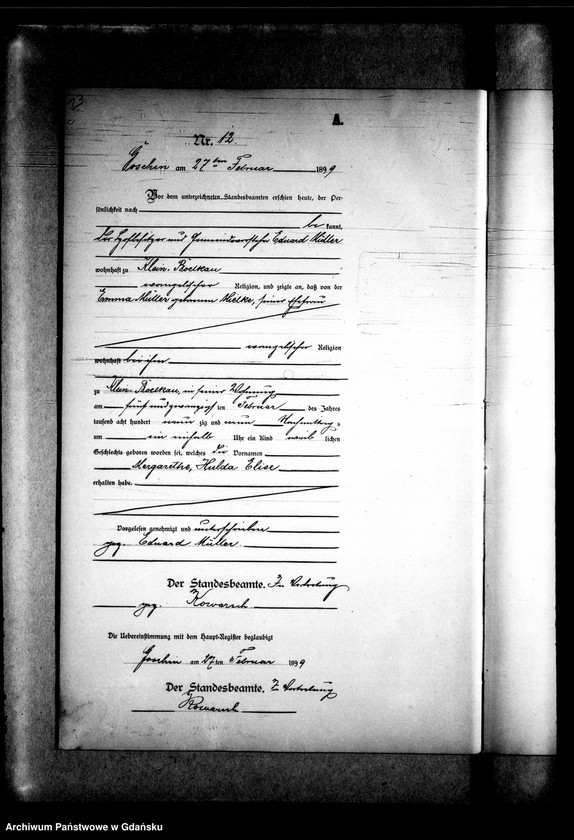 A.
Nr. 12
Goschin am 27ten Februar 1899
Vor dem unterzeichneten Standesbeamten erschien heute, der Per-
sönlichkeit nach
bekannt,
der Hofbesitzer und Gemeindevorsteher Eduard Müller
wohnhaft zu Klein Boelkau
evangelischer Religion, und zeigte an, daß von der
Emma Müller geborenen Mielke, seiner Ehefrau
evangelischer Religion
wohnhaft bei ihm
zu Klein Boelkau, in seiner Wohnung
am fünf und zwanzigsten Februar des Jahres
tausend acht hundert neunzig und neun Nachmittags
um ein einhalb Uhr ein Kind weiblichen
Geschlechts geboren worden sei, welches die Vornamen
Margarethe, Hulda Elise
erhalten habe.
Vorgelesen, genehmigt und unterschrieben
gez. Eduard Müller.
Der Standesbeamte. In Vertretung
gez. Kowarsch
Die Uebereinstimmung mit dem Haupt-Register beglaubigt
Goschin am 27ten Februar 1899
Der Standesbeamte. In Vertretung
Kowarsch
Archiwum Państwowe w Gdańsku